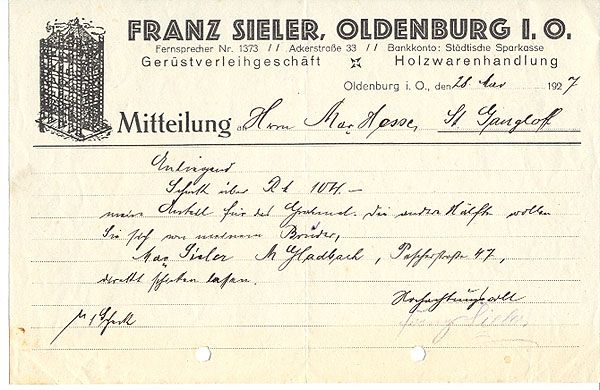 FRANZ SIELER, OLDENBURG I. O.
Fernsprecher Nr. 1373 // Ackerstraße 33 // Bankkonto: Städtische Sparkasse
Gerüstverleihgeschäft Holzwarenhandlung
Oldenburg i. O., den 28. 1927
Mitteilung an Herrn Max Hesse, St. Gangloff
Anliegend
Scheck über 104.—
meine Anteil für das Grabmal. Die andere Hälfte wollen
Sie sich von meinem Bruder,
Max Sieler M Gladbach, 47,
direkt schicken lassen.
Hochachtungsvoll
1 Scheck Franz Sieler.